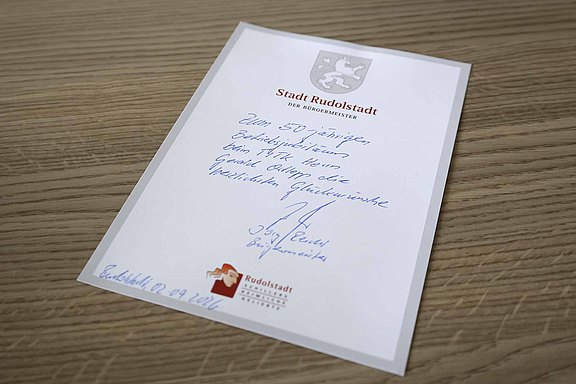 Stadt Rudolstadt
DER BÜRGERMEISTER
Zum 50 jährigen
Betriebsjubiläum
von MTK Herrn
Gerald die
herzlichsten Glückwünsche
Jörg Reichl
Bürgermeister
Rudolstadt
SCHILLERS
HEIMLICHE
GELIEBTE
Rudolstadt, 02.09.2026